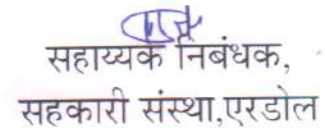 सहाय्यक निबंधक,
सहकारी संस्था,एरडोल